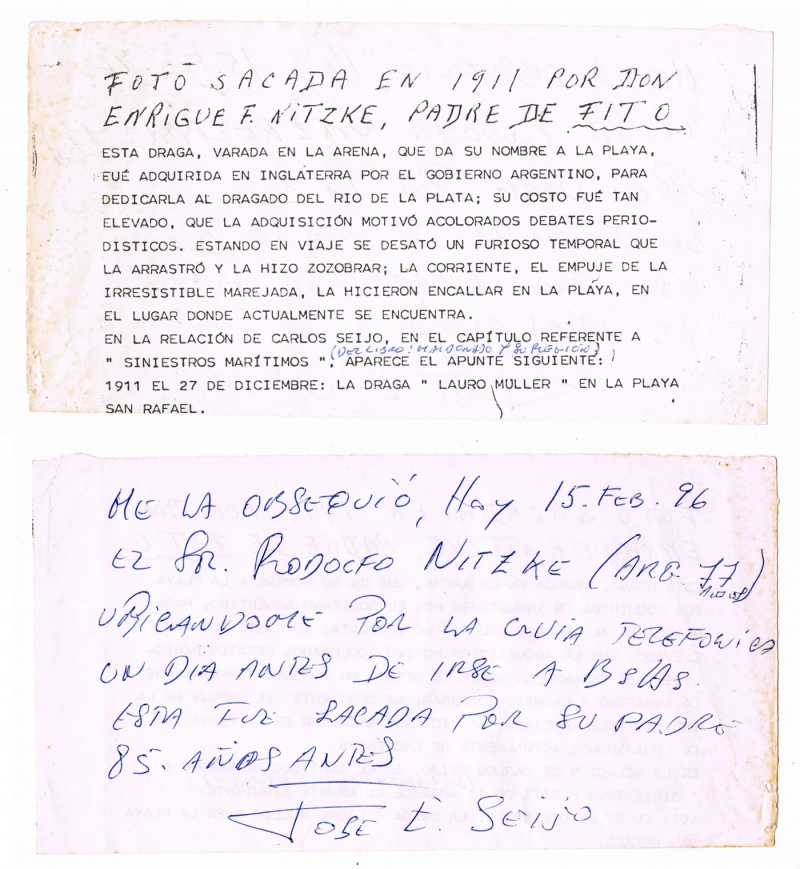 FOTO SACADA EN 1911 POR DON
ENRIQUE F. NITZKE, PADRE DE FITO
ESTA DRAGA, VARADA EN LA ARENA, QUE DA SU NOMBRE A LA PLAYA,
FUÉ ADQUIRIDA EN INGLATERRA POR EL GOBIERNO ARGENTINO, PARA
DEDICARLA AL DRAGADO DEL RIO DE LA PLATA; SU COSTO FUÉ TAN
ELEVADO, QUE LA ADQUISICIÓN MOTIVÓ ACOLORADOS DEBATES PERIO-
DISTICOS. ESTANDO EN VIAJE SE DESATÓ UN FURIOSO TEMPORAL QUE
LA ARRASTRÓ Y LA HIZO ZOZOBRAR; LA CORRIENTE, EL EMPUJE DE LA
IRRESISTIBLE MAREJADA, LA HICIERON ENCALLAR EN LA PLAYA, EN
EL LUGAR DONDE ACTUALMENTE SE ENCUENTRA.
EN LA RELACIÓN DE CARLOS SEIJO, EN EL CAPÍTULO REFERENTE A
(DEL LIBRO: MALDONADO Y SU REGIÓN)
" SINIESTROS MARÍTIMOS ", APARECE EL APUNTE SIGUIENTE:
1911 EL 27 DE DICIEMBRE: LA DRAGA " LAURO MULLER " EN LA PLAYA
SAN RAFAEL.
ME LA OBSEQUIÓ, HOY 15. FEB. 96
EL SR. RODOLFO NITZKE (ARG. 77
AÑOS)
UBICANDOME POR LA GUIA TELEFONICA
UN DIA ANTES DE IRSE A BS/AS.
ESTA FUE SACADA POR SU PADRE
85. AÑOS ANTES
JOSE E. SEIJO